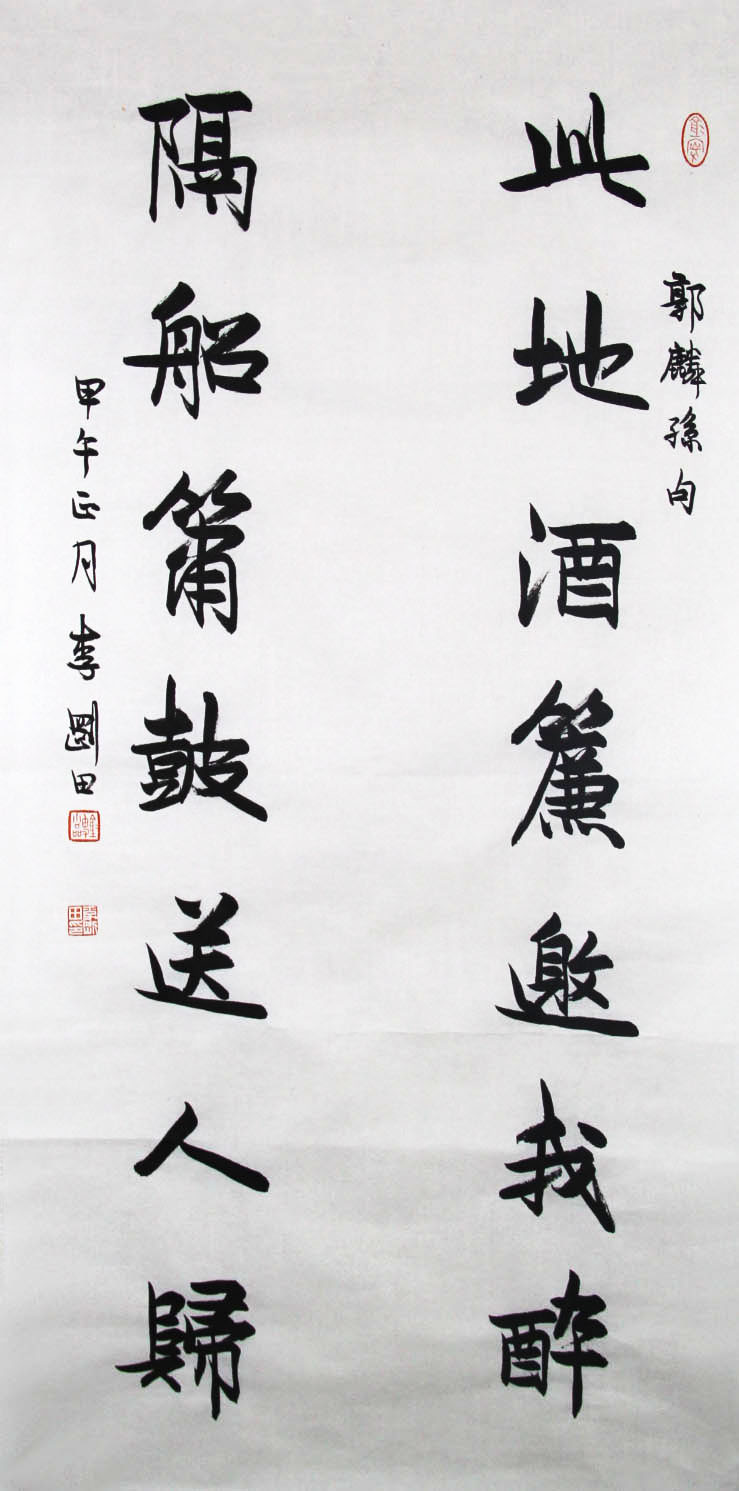 郭麟孫句
此地酒簾邀我醉
隔船簫鼓送人歸
甲午正月李剛田